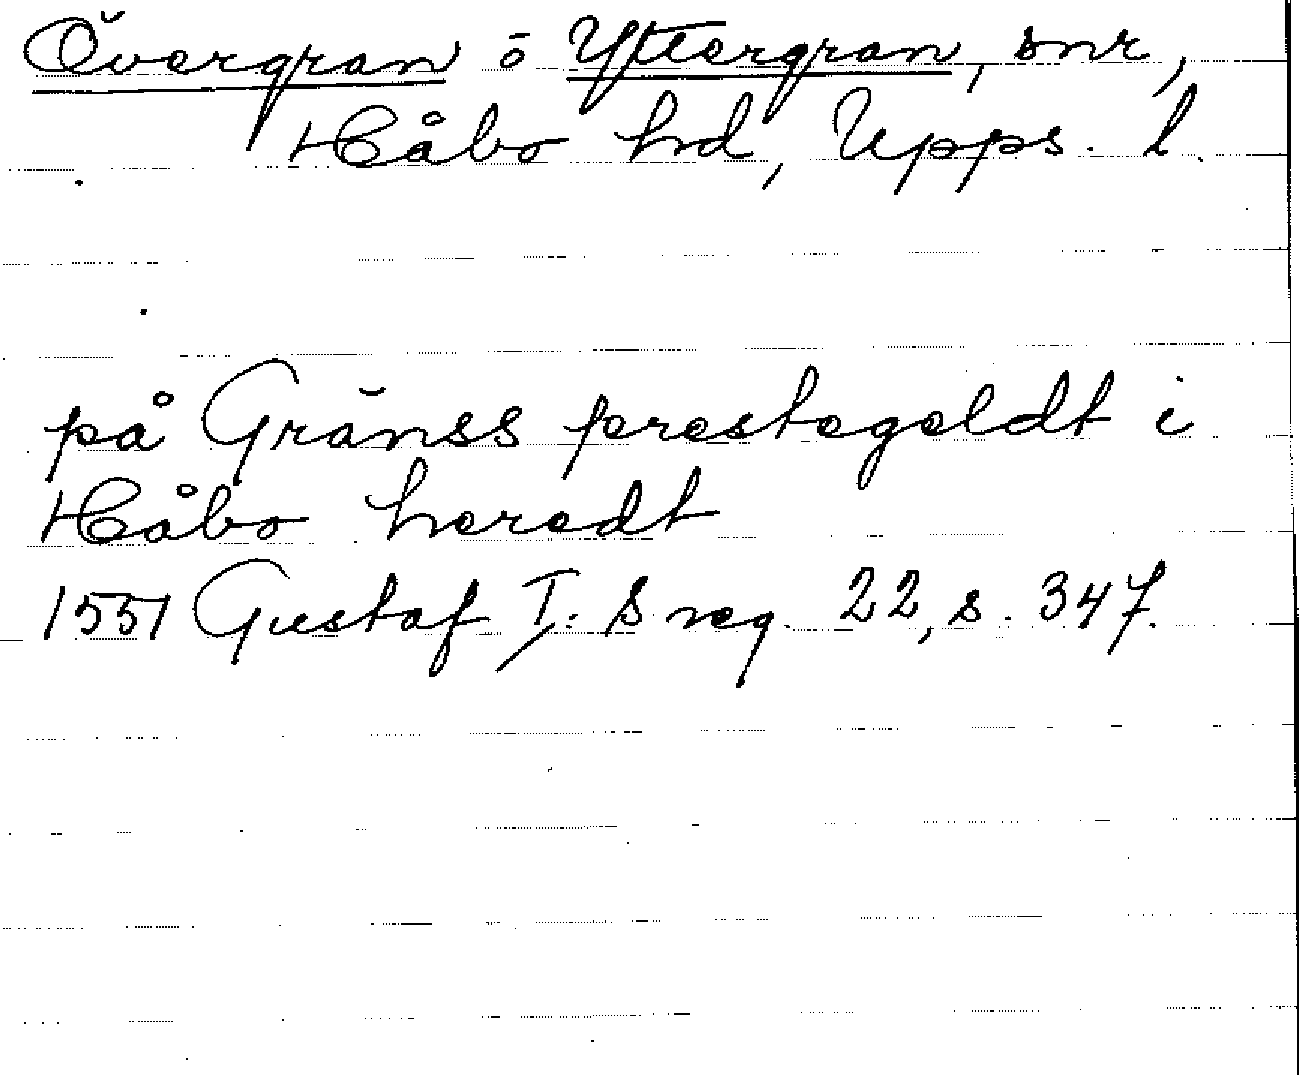 Övergran o Yttergran, snr,
Håbo hd, Upps. l.
på Gränss prestegeldt i
Håbo heredt
1551 Gustaf I:s reg. 22, s. 347.